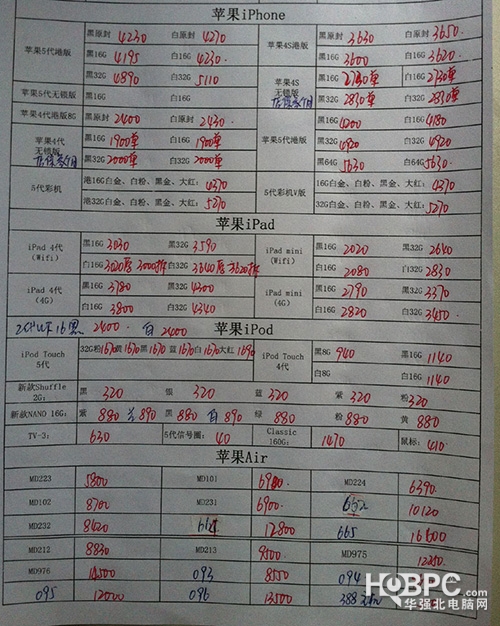 苹果iPhone
苹果5代港版 黑原封 4230 白原封 4270 苹果4S港版 黑原封 3630 白原封 3650.
黑16G 4195 白16G 4230. 黑16G 3600 白16G 3620.
黑32G 4890 白32G 5110 苹果4S无锁版 黑16G 白16G
苹果5代无锁版 黑16G 白16G 黑32G 2830单 白32G 2830单
苹果4代港版8G 黑原封 2400 白原封 2430. 苹果5代港版 黑16G 4200 白16G 4180
苹果4代无锁版 黑16G 1900单 白16G 1900单 黑32G 4920 白32G 4920
黑32G 2000单 白32G 2000单 黑64G 5630 白64G 5630.
5代彩机 港16G白金、白粉、黑金、大红: 4370 5代彩机V版 16G白金、白粉、黑金、大红: 4370
港32G白金、白粉、黑金、大红: 5270 32G白金、白粉、黑金、大红: 5270
苹果iPad
iPad 4代 (Wifi) 黑16G 3030 黑32G 3590 iPad mini (Wifi) 黑16G 2020 黑32G 2640
白16G 3020 3000 白32G 3640 3620 白16G 2080 白32G 2830
iPad 4代 (4G) 黑16G 3780 黑32G 4300 iPad mini (4G) 黑16G 2790 黑32G 3370
白16G 3800 白32G 4340 白16G 2820 白32G 3450
16黑 2400 白 2400 苹果iPod
iPod Touch 5代 32G粉1670黑1670蓝1670白1670大红1690 iPod Touch 4代 黑8G 940 黑16G 1140
白8G 白16G 1140
新款Shuffle 2G: 黑 320 银 320 蓝 320 紫 320 粉 320
新款NANO 16G: 紫 880 兰 890 黑 880 白 890 绿 880 粉 880 黄 880
TV-3: 630 5代信号圈: 40 Classic 160G: 1470 鼠标: 410
苹果Air
MD223 5800 MD101 MD224 6390.
MD102 8700 MD231 6900. 662 10120
MD232 8620 664 12800 665 16600
MD212 8830 MD213 9500 MD975 12250
MD976 14500 093 8550 094
095 12000 096 13500 388
HQBPC.com
华强北电脑网